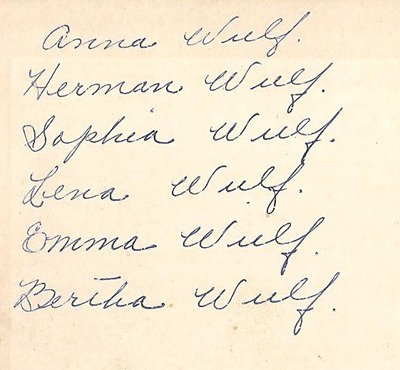 Anna Wulf.
Herman Wulf.
Sophia Wulf.
Lena Wulf.
Emma Wulf.
Bertha Wulf.